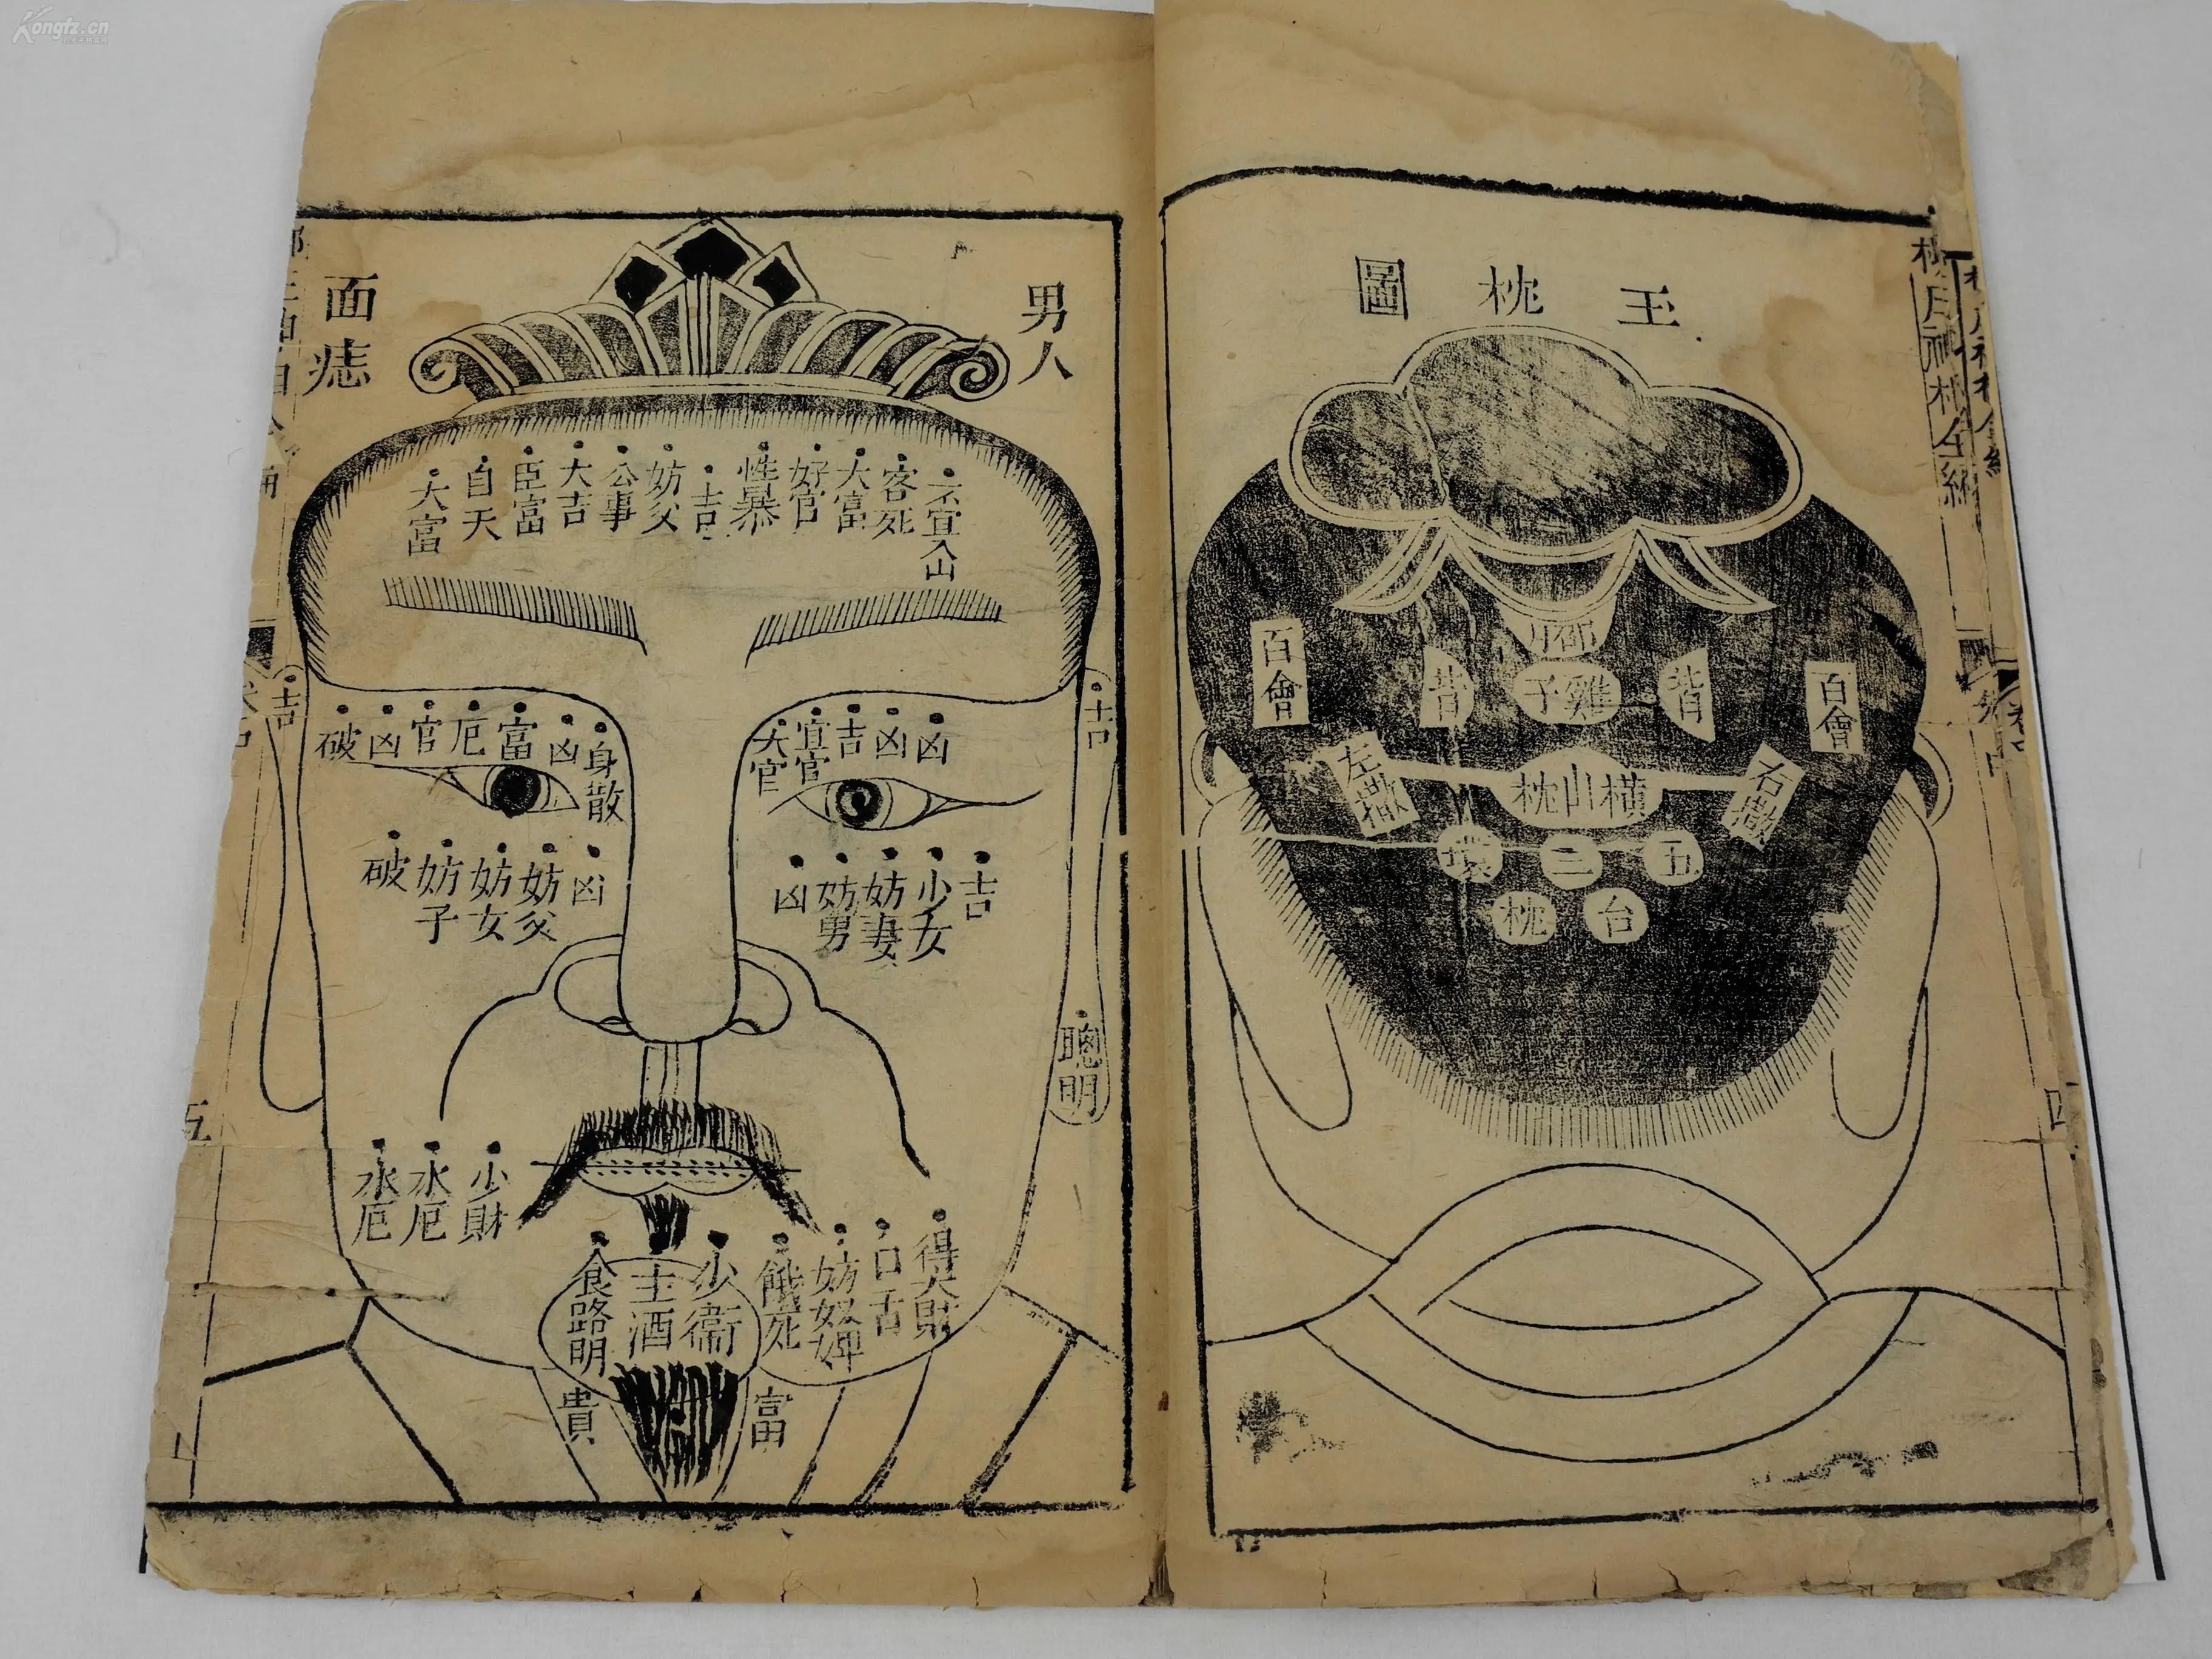 Kongfz.cn
玉枕圖
百會
百會
背
背
雞子
左撒
右撒
橫山枕
五
三
環
台
枕
四
男人
面痣
不宜入山
客死
大富
好官
性暴
吉
妨父
公事
大吉
臣富
自天
大富
吉
凶
凶
吉
宜官
大官
身散
凶
富
厄
官
凶
破
吉
吉
少女
妨妻
妨男
凶
凶
妨父
妨女
妨子
破
聰明
少財
水厄
水厄
得大財
口舌
妨奴婢
餓死
少衞
主酒
食路明
富
貴
五